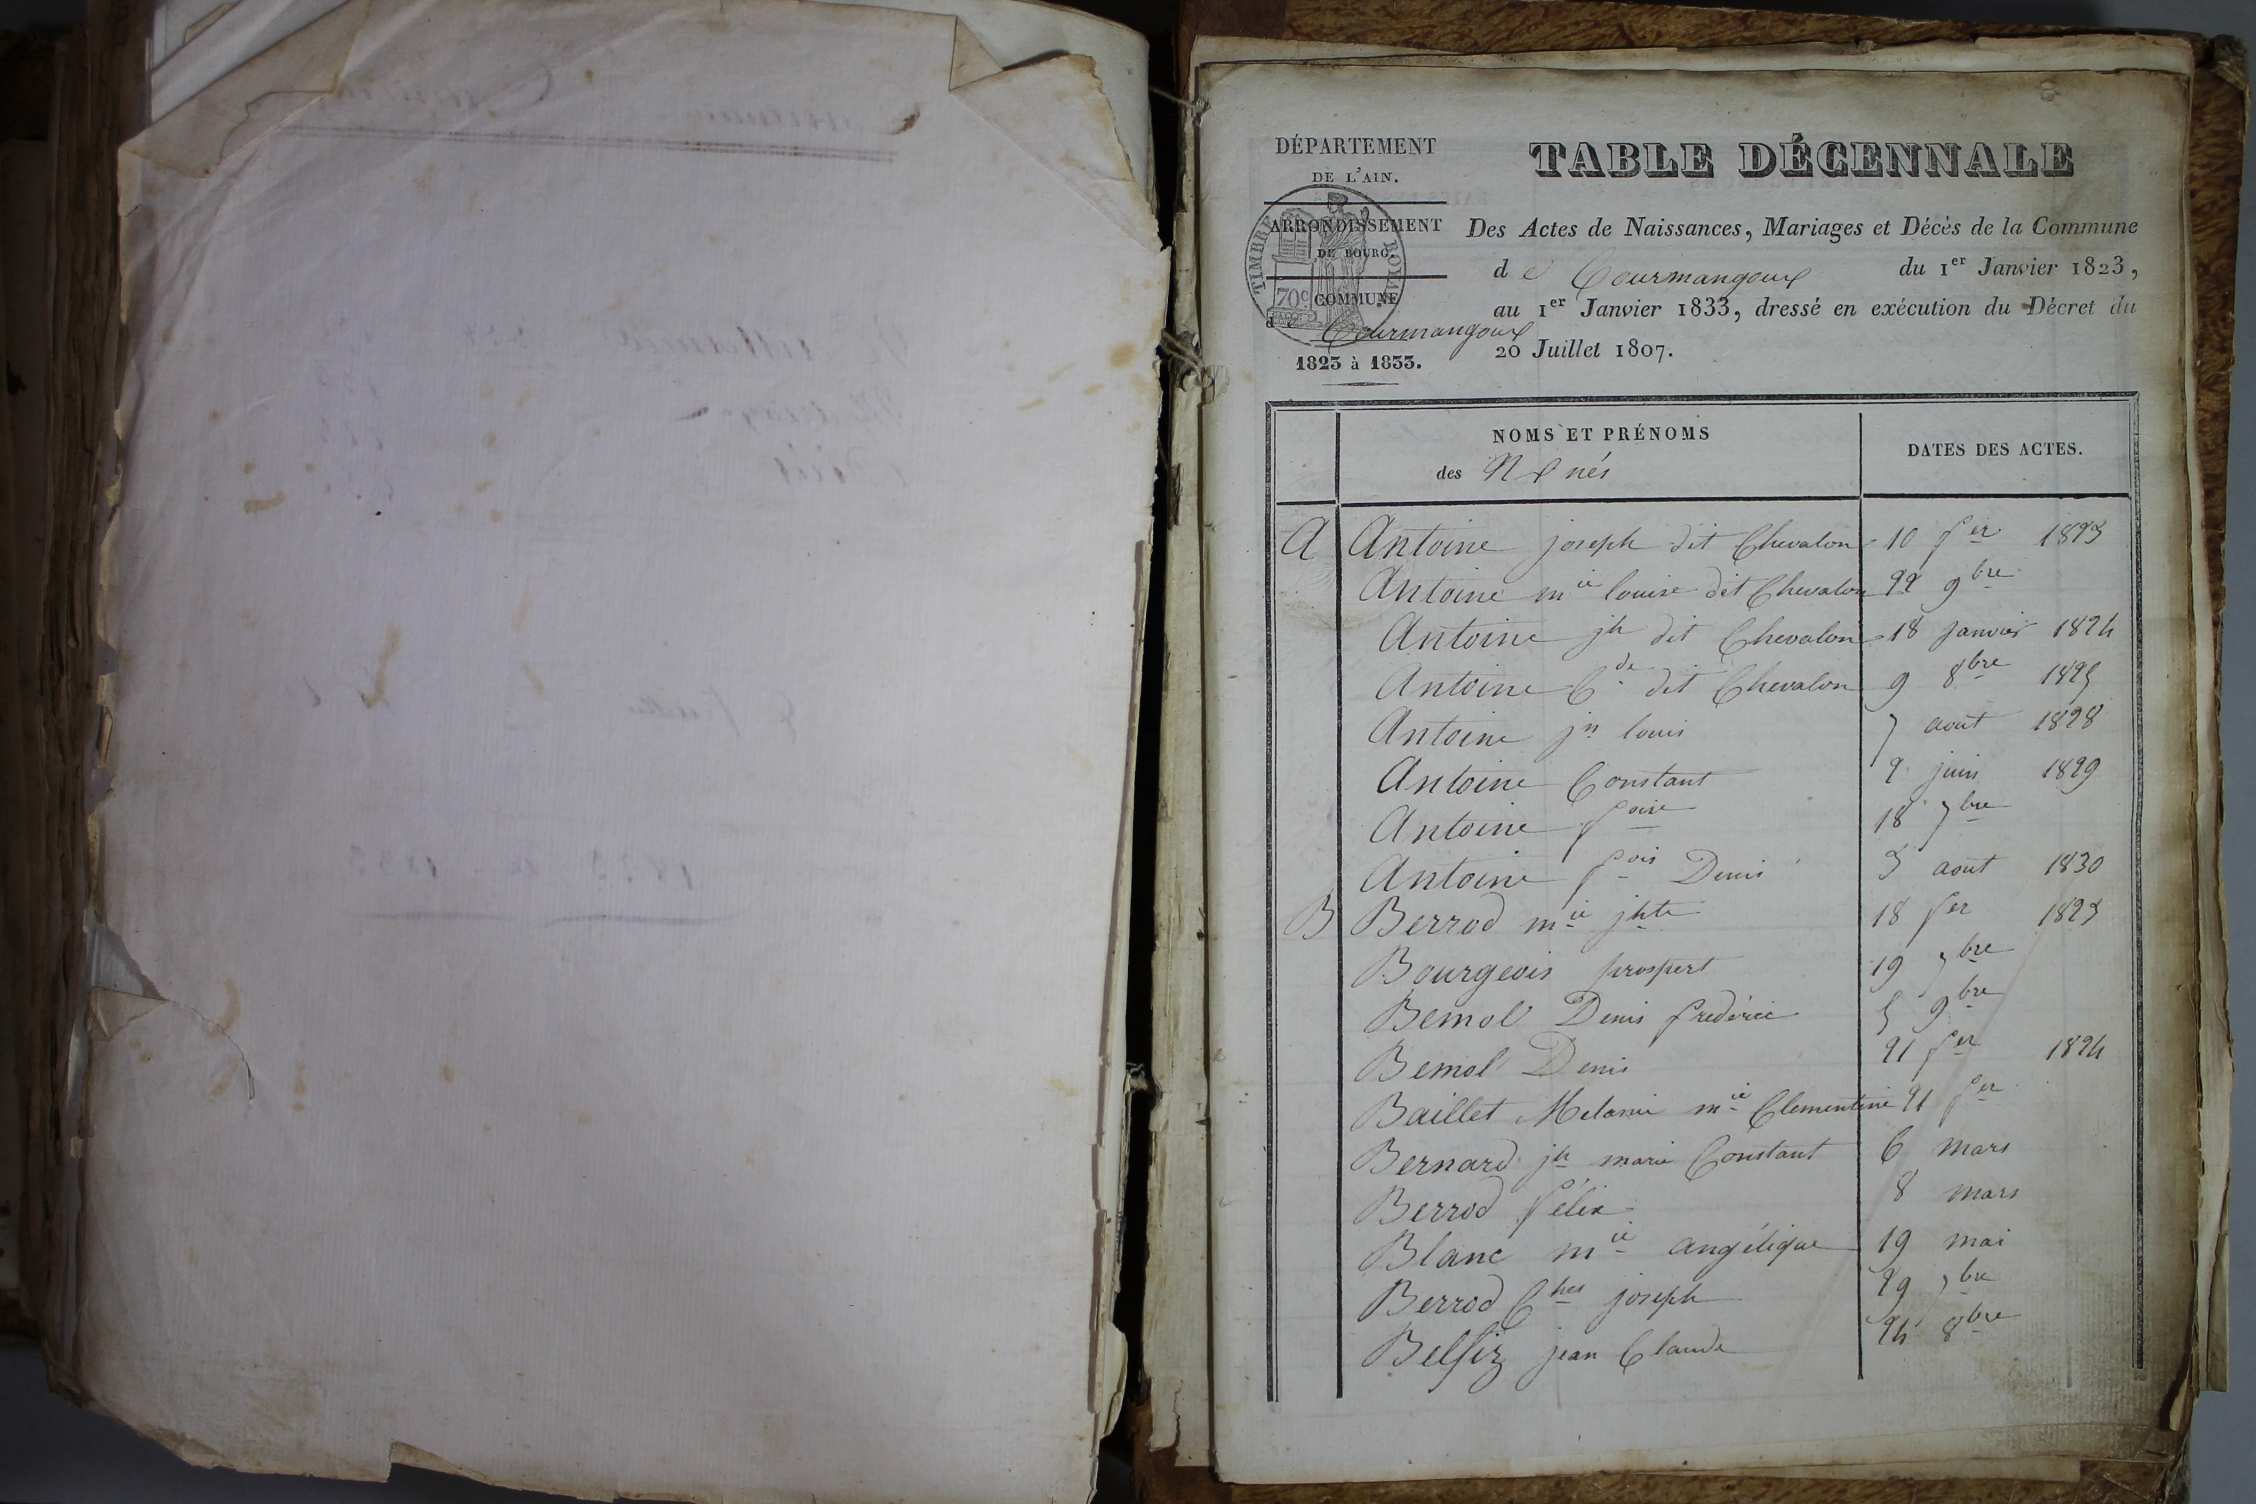 DÉPARTEMENT
DE L'AIN.
ARRONDISSEMENT
DE BOURG.
COMMUNE
de Courmangoux
1823 à 1833.
TIMBRE ROYAL
70c
TABLE DÉCENNALE
Des Actes de Naissances, Mariages et Décès de la Commune
de Courmangoux du 1er Janvier 1823,
au 1er Janvier 1833, dressé en exécution du Décret du
20 Juillet 1807.
NOMS ET PRÉNOMS
des nés
DATES DES ACTES.
A Antoine joseph dit Chevalon 10 fer 1823
Antoine mie louise dit Chevalon 22 9bre
Antoine jh dit Chevalon 18 janvier 1824
Antoine Cde dit Chevalon 9 8bre 1825
Antoine jn louis 7 aout 1828
Antoine Constant 2 juin 1829
Antoine foise 18 7bre
Antoine fois Denis 3 aout 1830
B Berrod mie jhte 18 fer 1823
Bourgeois prospert 19 7bre
Bemol Denis frederic 5 9bre
Bemol Denis 21 fer 1824
Baillet Melanie mie Clementine 21 fer
Bernard jh marie Constant 6 mars
Berrod félix 8 mars
Blanc mie angélique 19 mai
Berrod Ches joseph 29 7bre
jean Claude 24 8bre